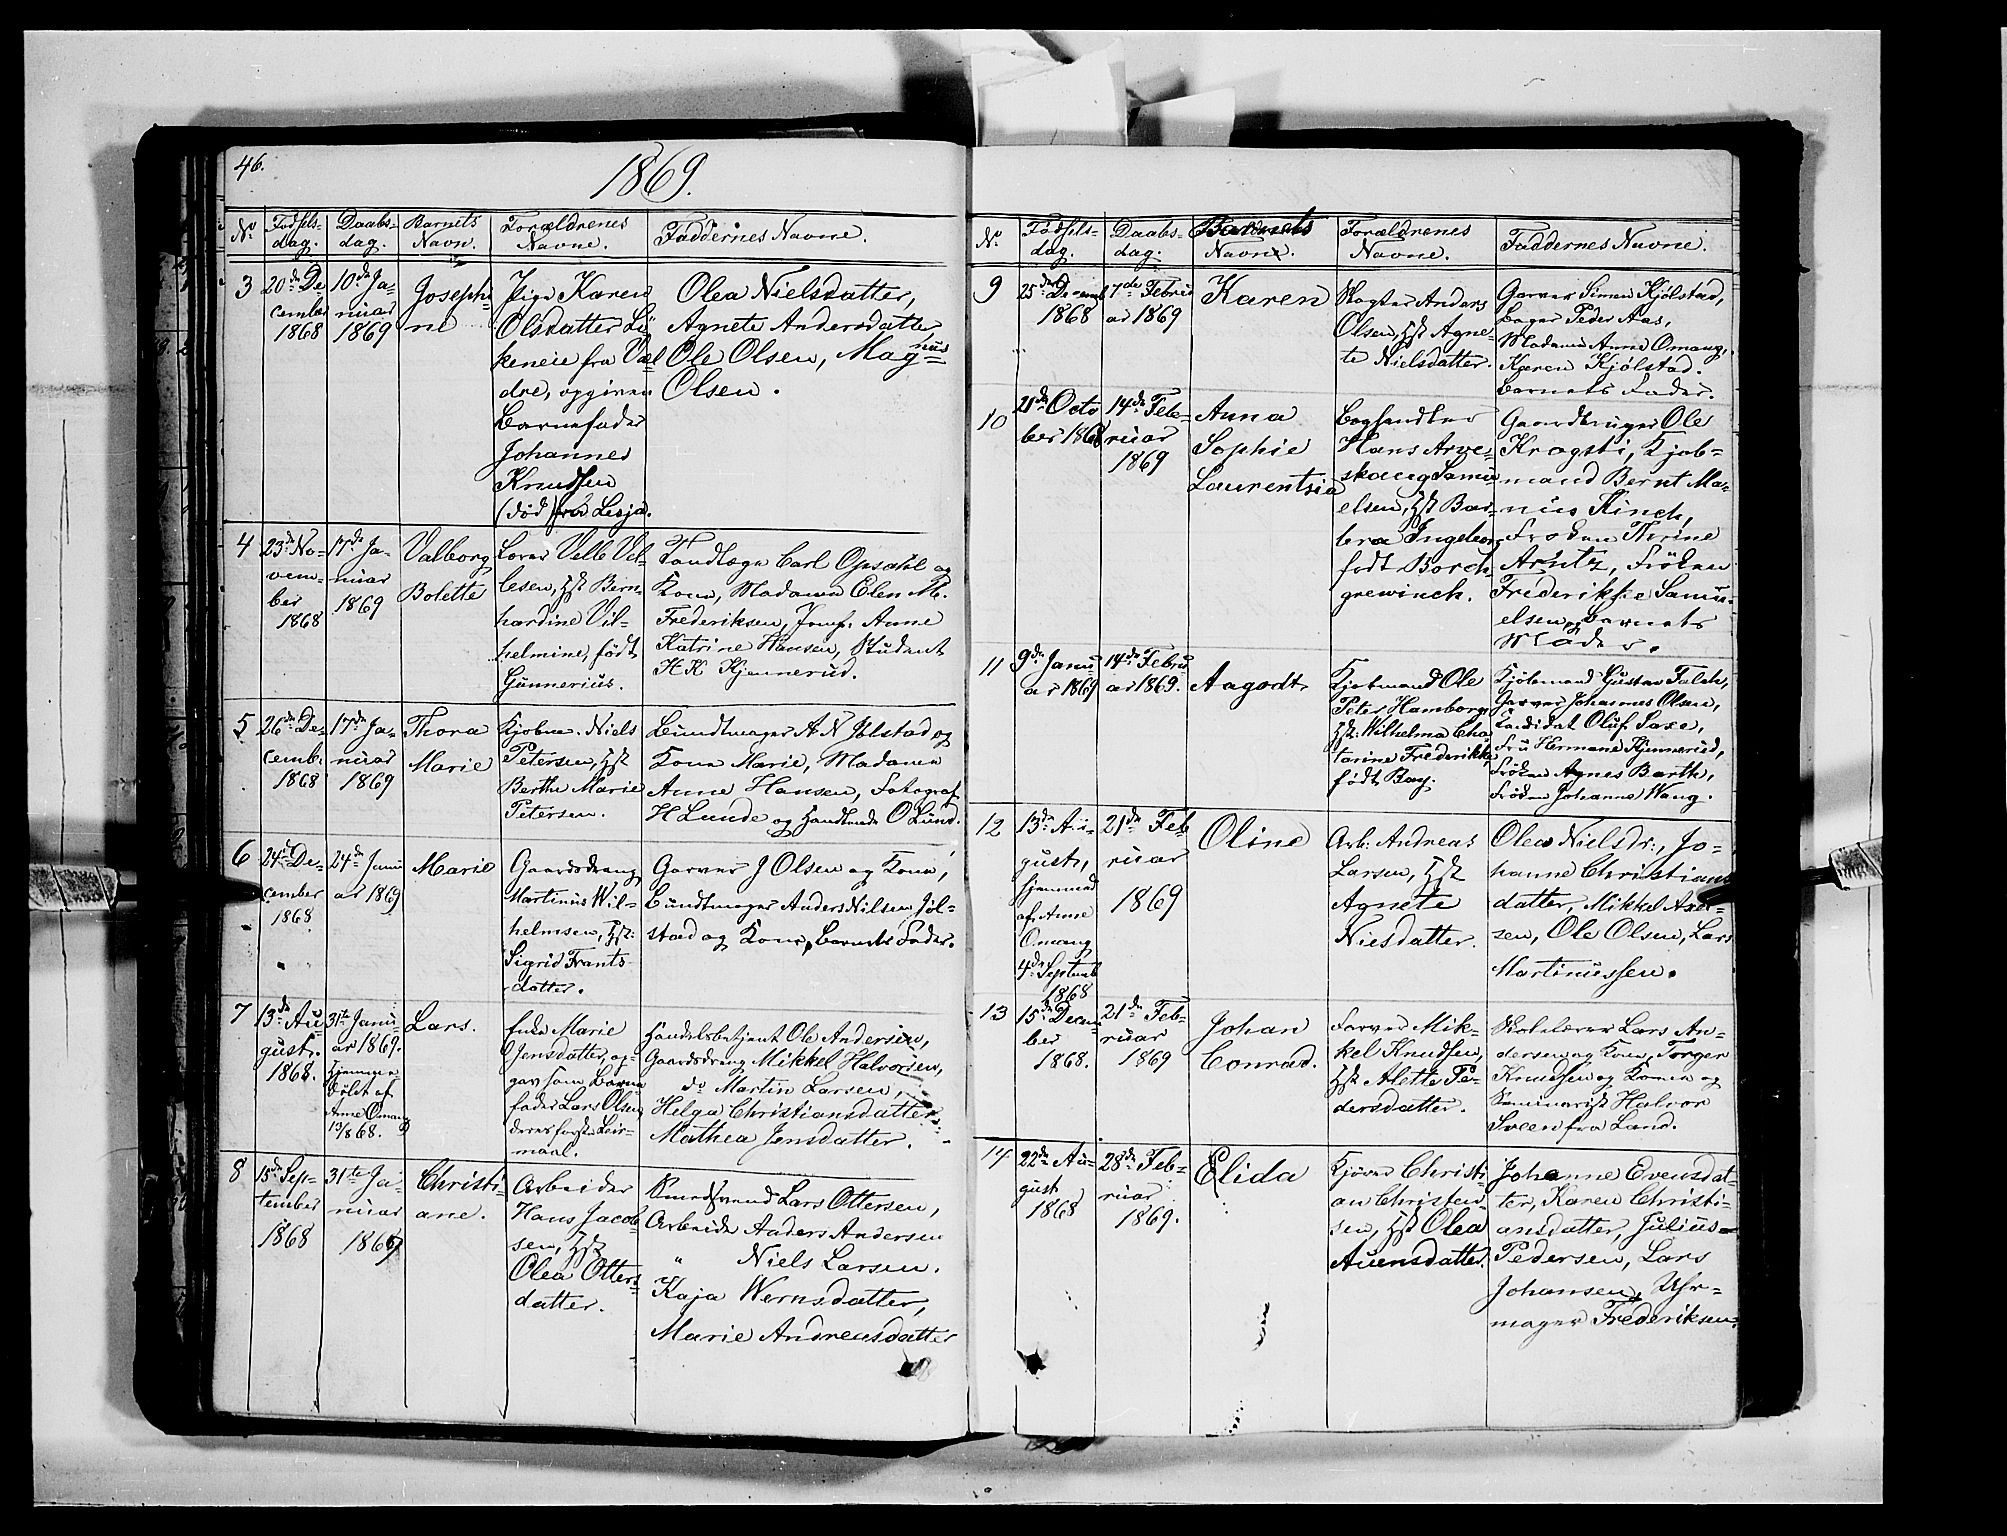 46.
1869.
No.
Fødsels-
dag.
Daabs-
dag.
Barnets
Navn.
Forældrenes
Navne.
Faddernes Navne.
3
20de De-
cember
1868
10de Ja-
nuar
1869
Josephi-
ne
Pige Karen
Olsdatter Lö-
keneie fra Val-
dre, opgiven
Barnefader
Johannes
Knudsen
(död) fra Lesja.
Olea Nielsdatter,
Agnete Andersdatter
Ole Olsen, Magnus
Olsen.
4
23de No-
vem-
ber
1868
17de Ja-
nuar
1869
Valborg
Bolette
Lærer Velle Vel-
lesen, Hst Bern-
hardine Vil-
helmine, født
Günnerius.
Tandlæge Carl Opsahl og
Kone, Madame Elen M.
Frederiksen, Jomf. Anne
Katrine Hansen, Student
H K Kjennerud.
5
26de De-
cemb.
1868
17de Ja-
nuar
1869
Thora
Marie
Kjøbm. Niels
Petersen, Hst
Berthe Marie
Petersen.
Bundtmager A N Jølstad og
Kone Marie, Madame
Anne Hansen, Fotograf
H Lunde og Handlende O Lund.
6
24de De-
cember
1868
24de Janu
ar 1869
Marie
Gaardsdreng
Martinus Wil-
helmsen, Hst:
Sigrid Frants-
datter.
Garver J Olsen og Kone,
Bundtmager Anders Nilsen Jøl-
stad og Kone, Barnets Fader.
7
13de Au
gust.
1868.
31te Janu-
ar 1869.
Hjemme-
døbt af
Anne Omang
13/8 68.
Lars.
Enke Marie
Jensdatter, op-
gav som Barne-
fader Lars Olsen
deres første Leir-
maal.
Handelsbetjent Ole Andersen,
Gaardsdreng Mikkel Halvorsen,
do Martin Larsen,
Helga Christiansdatter
Mathea Jensdatter.
8
15de Sep-
tember
1868
31te Ja-
nuar
1869
Christi-
ane.
Arbeider
Hans Jacob-
sen, Hst
Olea Otters-
datter.
Smedsvend Lars Ottersen,
Arbeide Anders Andersen
" Niels Larsen.
Kaja Wernsdatter,
Marie Andreasdatter
No.
Fødsels-
dag.
Daabs-
dag.
Barnets
Navne.
Forældrenes
Navne.
Faddernes Navne.
9
25de Decemb
1868
7de Febru
ar 1869
Karen
Vægter Anders
Olsen, Hst Agne-
te Nielsdatter.
Garver Simen Kjølstad,
Bager Peder Aas,
Madame Anne Omang,
Karen Kjølstad.
Barnets Fader.
10
21de Octo
ber 1868
14de Feb-
ruar
1869
Anna
Sophie
Laurentsia
Boghandler
Hans Arve-
skoug Samu-
elsen, Hst Bar-
bra Ingeborg
født Borch-
grewinck.
Gaardbruger Ole
Kragsti, Kjøb-
mand Bernt Ma-
nius Kinck,
Frøken Thrine
Arntz, Frøken
Frederikke Samu-
elsen, og Barnets
Moder.
11
9de Janu
ar 1869
14de Febru
ar 1869.
Aagodt
Kjøbmand Ole
Peter Hamborg
Hst: Wilhelma Cha-
tarine Frederikke,
født Bay.
Kjøbmand Gustav Falch,
Garver Johannes Olsen,
Kandidat Oluf Saxe,
Fru Hermane Kjennerud,
Frøken Agnes Barth,
Frøken Johanne Wang.
12
13de Au-
gust,
hjemmed
af Anne
Omang
4de Septemb
1868
21de Feb
ruar
1869
Oline
Arb. Andreas
Larsen, Hst
Agnete
Niesdatter.
Olea Nielsdr., Jo-
hanne Christians
datter, Mikkel Axel-
sen, Ole Olsen, Lars
Martinussen.
13
15de Decem
ber
1868.
21de Feb-
ruar
1869
Johan
Conrad.
Farver Mik-
kel Knudsen,
Hst Alette Pe-
dersdatter.
Skolelærer Lars An-
dersen og Kone, Torger
Knudsen og Konen og
Seminarist Halvor
Sveen fra Land.
14
22de Au-
gust
1868
28de Feb-
ruar
1869.
Elida
Kjører Christi-
an Christen
sen, Hst Olea
Auensdatter.
Johanne Evensdat-
ter, Karen Christi-
ansdatter, Julius
Pedersen, Lars
Johansen, Uhr-
mager Frederiksen.